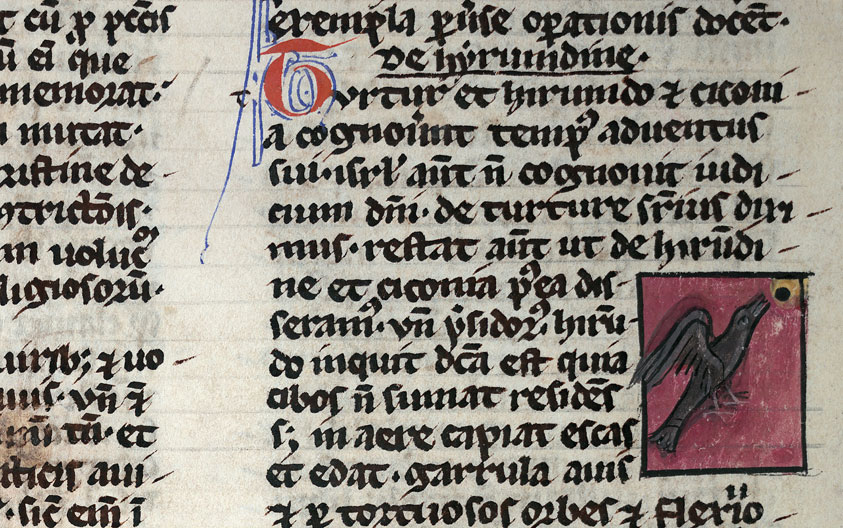 t cū ꝓ pccīs
ū eī que
memorat·
mittat·
ristine de
ligiosorū·
et uo
tū· et
aui-
·sic̄ em̄ ī
exempla p̄use operationis docēt·
De hyrundine·
t Turtur et hirundo ⁊ ciconi-
a cognouerūt temp⁹ aduentus
sui·isrl̄ aūt n̄ cognouit iudi-
cium dn̄i· de turture sr̄ius dixi-
mus· restat aūt ut de hirūdi-
ne et ciconia p⁹ea dis-
seram⁹· vn̄ ysidor⁹ hirū-
do inquit dc̄a est quia
cibos n̄ sumat residēs
s; in aere capiat escas
et edat·garrula auis
⁊ ꝑ tortuosos orbes ⁊ flexuo-